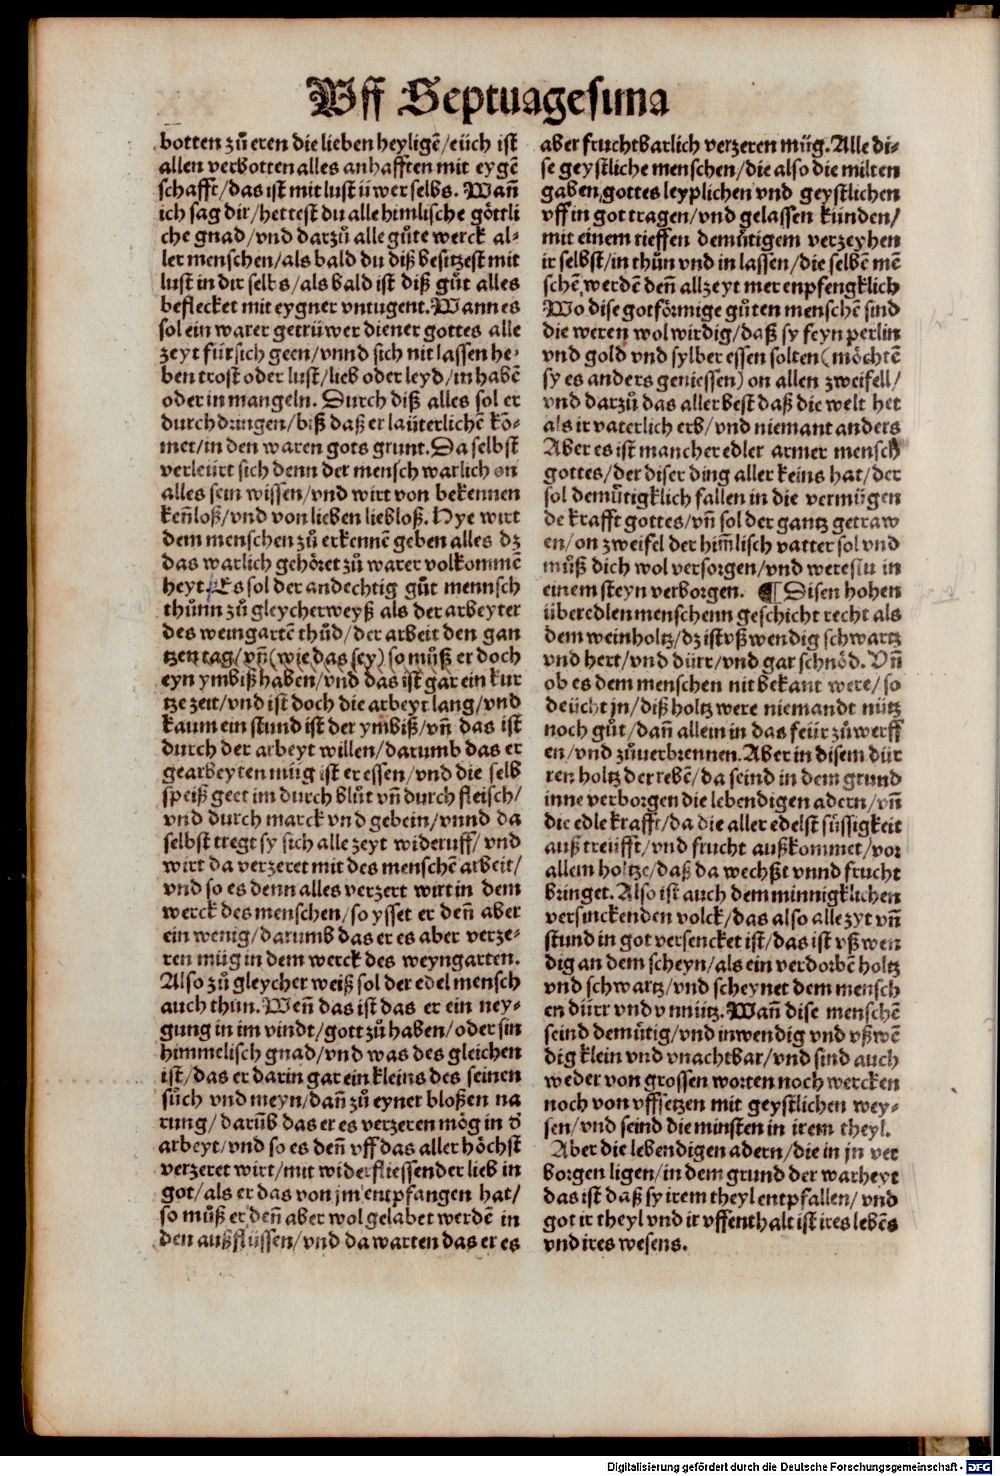 Vff Septuagesima
botten zů eren die lieben heyligē/eüch ist
allen verbotten alles anhafften mit eygē
schafft/das ist mit lust üwer selbs. Wañ
ich sag dir/hettest du alle himlische göttli
che gnad/vnd darzů alle gůte werck al-
ler menschen/als bald du diß besitzest mit
lust in dir selbs/als bald ist diß gůt alles
beflecket mit eygner vntugent. Wann es
sol ein warer getrüwer diener gottes alle
zeyt fürsich geen/vnnd sich nit lassen he-
ben trost oder lust/lieb oder leyd/in habē
oder in mangeln. Durch diß alles sol er
durchdringen/biß daß er laüterlichē kō-
met/in den waren gots grunt. Da selbst
verleürt sich denn der mensch warlich on
alles sein wissen/vnd wirt von bekennen
keñloß/vnd von lieben liebloß. Hye wirt
dem menschen zů erkennē geben alles dz
das warlich gehöret zů warer volkommē
heyt. Es sol der andechtig gůt mennsch
thůnn zů gleycherweyß als der arbeyter
des weingartē thůd/der arbeit den gan
tzen tag/vñ(wie das sey)so můß er doch
eyn ymbiß haben/vnd das ist gar ein kur
tze zeit/vnd ist doch die arbeyt lang/vnd
kaum ein stund ist der ymbiß/vñ das ist
durch der arbeyt willen/darumb das er
gearbeyten müg ist er essen/vnd die selb
speiß geet im durch blůt vñ durch fleisch/
vnd durch marck vnd gebein/vnnd da
selbst tregt sy sich alle zeyt wideruff/vnd
wirt da verzeret mit des menschē arbeit/
vnd so es denn alles verzert wirt in dem
werck des menschen/so ysset er deñ aber
ein wenig/darumb das er es aber verze-
ren müg in dem werck des weyngarten.
Also zů gleycher weiß sol der edel mensch
auch thun. Weñ das ist das er ein ney-
gung in im vindt/gott zů haben/oder sin
himmelisch gnad/vnd was des gleichen
ist/das er darin gar ein kleins des seinen
sůch vnd meyn/dañ zů eyner bloßen na
rung/darūb das er es verzeren mög in d̕
arbeyt/vnd so es deñ vff das aller höchst
verzeret wirt/mit widerfliessender lieb in
got/als er das von jm entpfangen hat/
so můß er deñ aber wol gelabet werdē in
den außflüssen/vnd da warten das er es
aber fruchtbarlich verzeren müg. Alle di-
se geystliche menschen/die also die milten
gaben gottes leyplichen vnd geystlichen
vff in got tragen/vnd gelassen künden/
mit einem tieffen demůtigem verzeyhen
ir selbst/in thůn vnd in lassen/die selbē mē
schē werdē deñ allzeyt mer enpfengklich
Wo dise gotförmige gůten menschē sind
die weren wol wirdig/daß sy feyn perlin
vnd gold vnd sylber essen solten(möchtē
sy es anders geniessen)on allen zweifell/
vnd darzů das aller best daß die welt het
als ir vaterlich erb/vnd niemant anders
Aber es ist mancher edler armer mensch
gottes/der diser ding aller keins hat/der
sol demůtigklich fallen in die vermügen
de krafft gottes/vñ sol der gantz getraw
en/on zweifel der him̄lisch vatter sol vnd
můß dich wol versorgen/vnd werestu in
einem steyn verborgen. ¶ Disen hohen
überedlen menschenn geschicht recht als
dem weinholtz/dz ist vßwendig schwartz
vnd hert/vnd dürr/vnd gar schnöd. Vñ
ob es dem menschen nit bekant were/so
deücht jn/diß holtz were niemandt nütz
noch gůt/dañ allein in das feür zůwerff
en/vnd zůuerbrennen. Aber in disem dür
ren holtz der rebē/da seind in dem grund
inne verborgen die lebendigen adern/vñ
die edle krafft/da die aller edelst süssigkeit
auß treüfft/vnd frucht außkommet/vor
allem holtze/daß da wechßt vnnd frucht
bringet. Also ist auch dem minnigklichen
versinckenden volck/das also alle zyt vñ
stund in got versencket ist/das ist vßwen
dig an dem scheyn/als ein verdorbē holtz
vnd schwartz/vnd scheynet dem mensch
en dürr vnd vnnütz. Wañ dise menschē
seind demütig/vnd inwendig vnd vßwē
dig klein vnd vnachtbar/vnd sind auch
weder von grossen worten noch wercken
noch von vffsetzen mit geystlichen wey-
sen/vnd seind die minsten in irem theyl.
Aber die lebendigen adern/die in jn ver
borgen ligen/in dem grund der warheyt
das ist daß sy irem theyl entpfallen/vnd
got ir theyl vnd ir vffenthalt ist ires lebēs
vnd ires wesens.
Digitalisierung gefördert durch die Deutsche Forschungsgemeinschaft - DFG